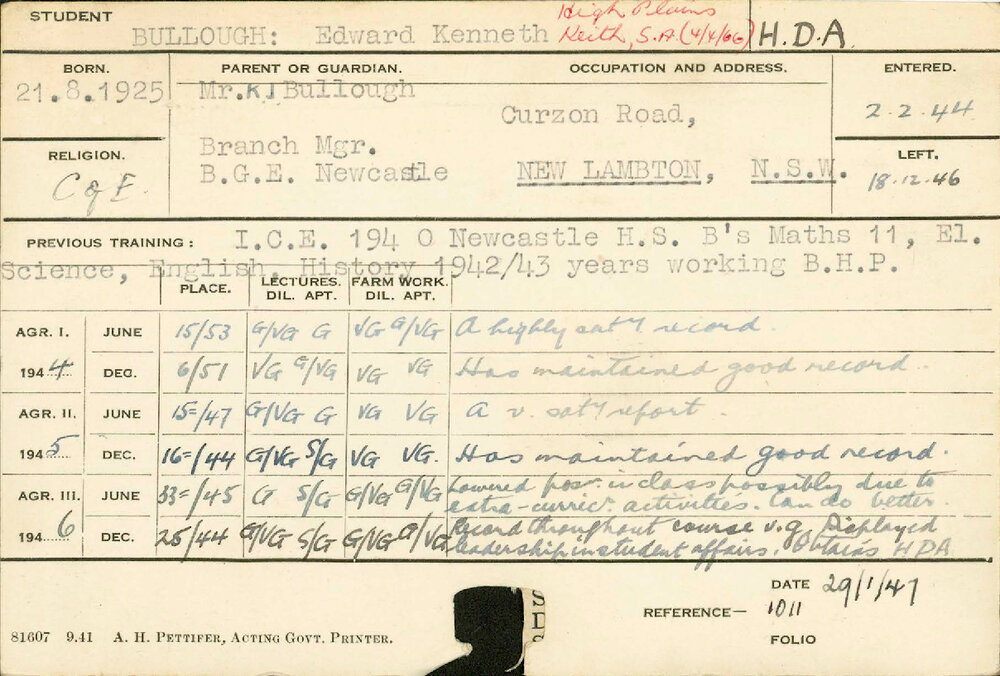 STUDENT
BULLOUGH: Edward Kenneth
High Plains
Keith, S.A. (4/4/66)
H.D.A.
BORN. PARENT OR GUARDIAN. OCCUPATION AND ADDRESS. ENTERED.
21.8.1925 Mr. KJ Bullough
Curzon Road,
2.2.44
Branch Mgr.
RELIGION. LEFT.
B.G.E. Newcastle NEW LAMBTON, N.S.W.
C of E. 18.12.46
PREVIOUS TRAINING: I.C.E. 194 0 Newcastle H.S. B's Maths 11, El.
Science, English, History 1942/43 years working B.H.P.
PLACE. LECTURES. FARM WORK.
DIL. APT. DIL. APT.
AGR. I. JUNE 15/53 G/VG G VG G/VG A highly sat'y record.
1944 DEC. 6/51 VG G/VG VG VG Has maintained good record.
AGR. II. JUNE 15=/47 G/VG G VG VG A v. sat'y report.
1945 DEC. 16=/44 G/VG S/G VG VG. Has maintained good record.
AGR. III. JUNE 33=/45 G S/G G/VG G/VG Lowered posn. in class possibly due to
extra-curric. activities. Can do better.
1946 DEC. 25/44 G/VG S/G G/VG G/VG Record throughout course v.g. Displayed
leadership in student affairs. Obtains HDA
DATE 29/1/47
REFERENCE— 1011
81607 9.41 A. H. PETTIFER, ACTING GOVT. PRINTER.
FOLIO